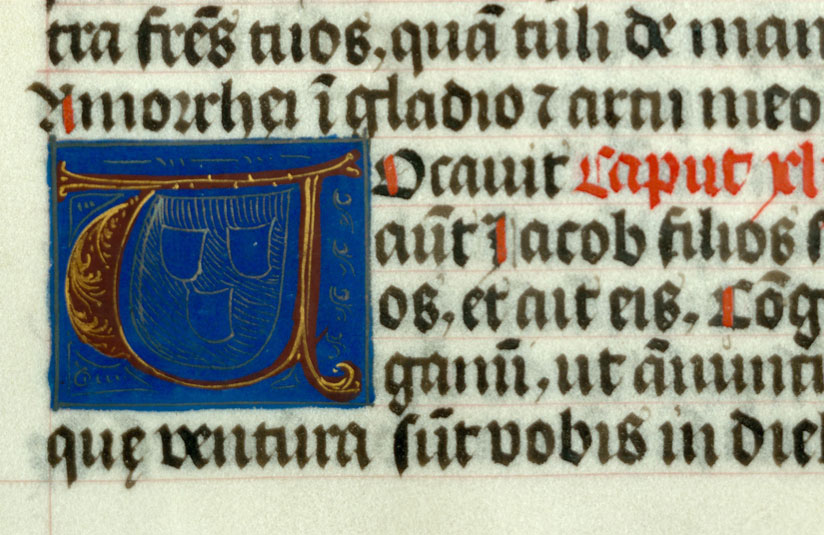 tra frēs tuos, quā tuli de man
Amorrhei ī gladio ⁊ arcu meo
VOcavit Caput xli
aūt Jacob filios s
os, et ait eis, Cōg
gamī, ut ānunti
quę ventura sūt vobis in dieb